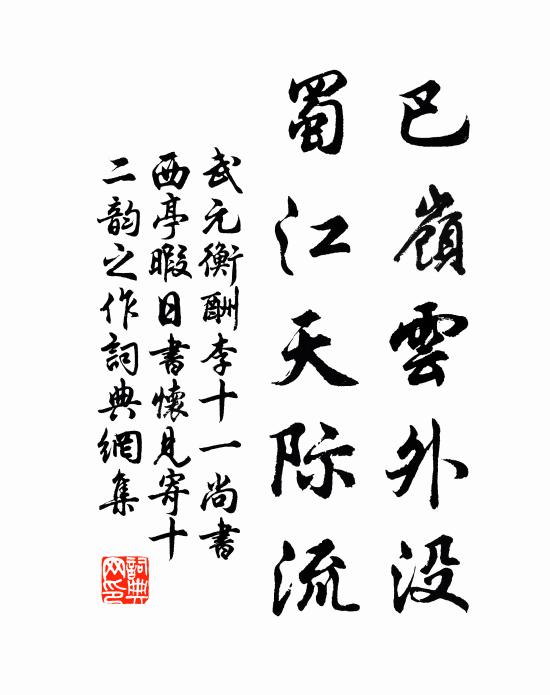 巴嶺雲外没
蜀江天际流
武元衡酬李十一尚書
西亭暇日書懷見寄十
二韵之作詞典網集
詞典
网印